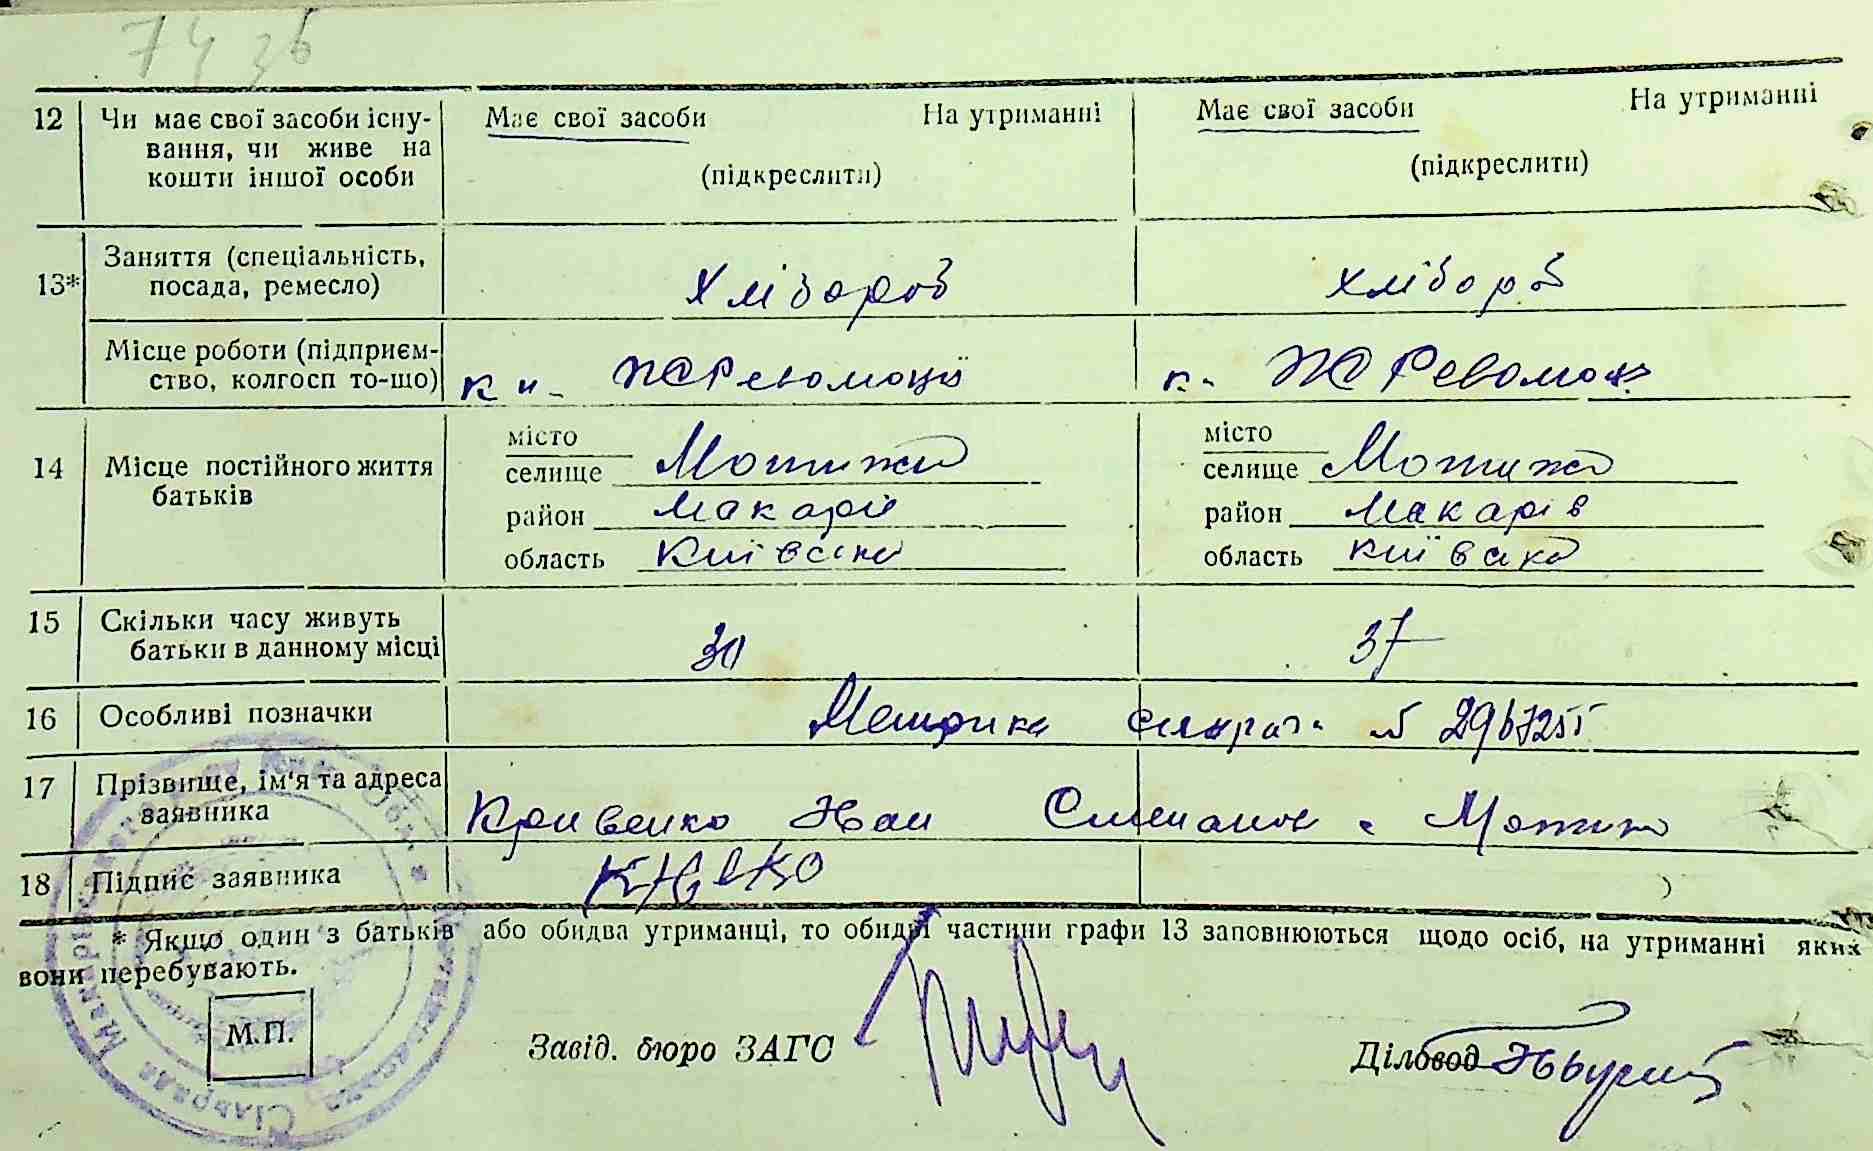 7436
12 Чи має свої засоби існу- Має свої засоби На утриманні Має свої засоби На утриманні
вання, чи живе на
кошти іншої особи (підкреслити) (підкреслити)
13* Заняття (спеціальність,
посада, ремесло) Хлібороб хлібороб
Місце роботи (підприєм-
ство, колгосп то-що)
14 Місце постійного життя
батьків
місто місто
селище Мотижин селище Мотижин
район Макарів район Макарів
область Київська область Київська
15 Скільки часу живуть
батьки в данному місці 30 37
16 Особливі позначки Метрика № 2967255
17 Прізвище, ім'я та адреса
заявника Кривенко Іван Степанов с Мотижин
18 Підпис заявника
* Якщо один з батьків або обидва утриманці, то обидві частини графи 13 заповнюються щодо осіб, на утриманні яких
вони перебувають.
М.П.
Завід. бюро ЗАГС Діловод